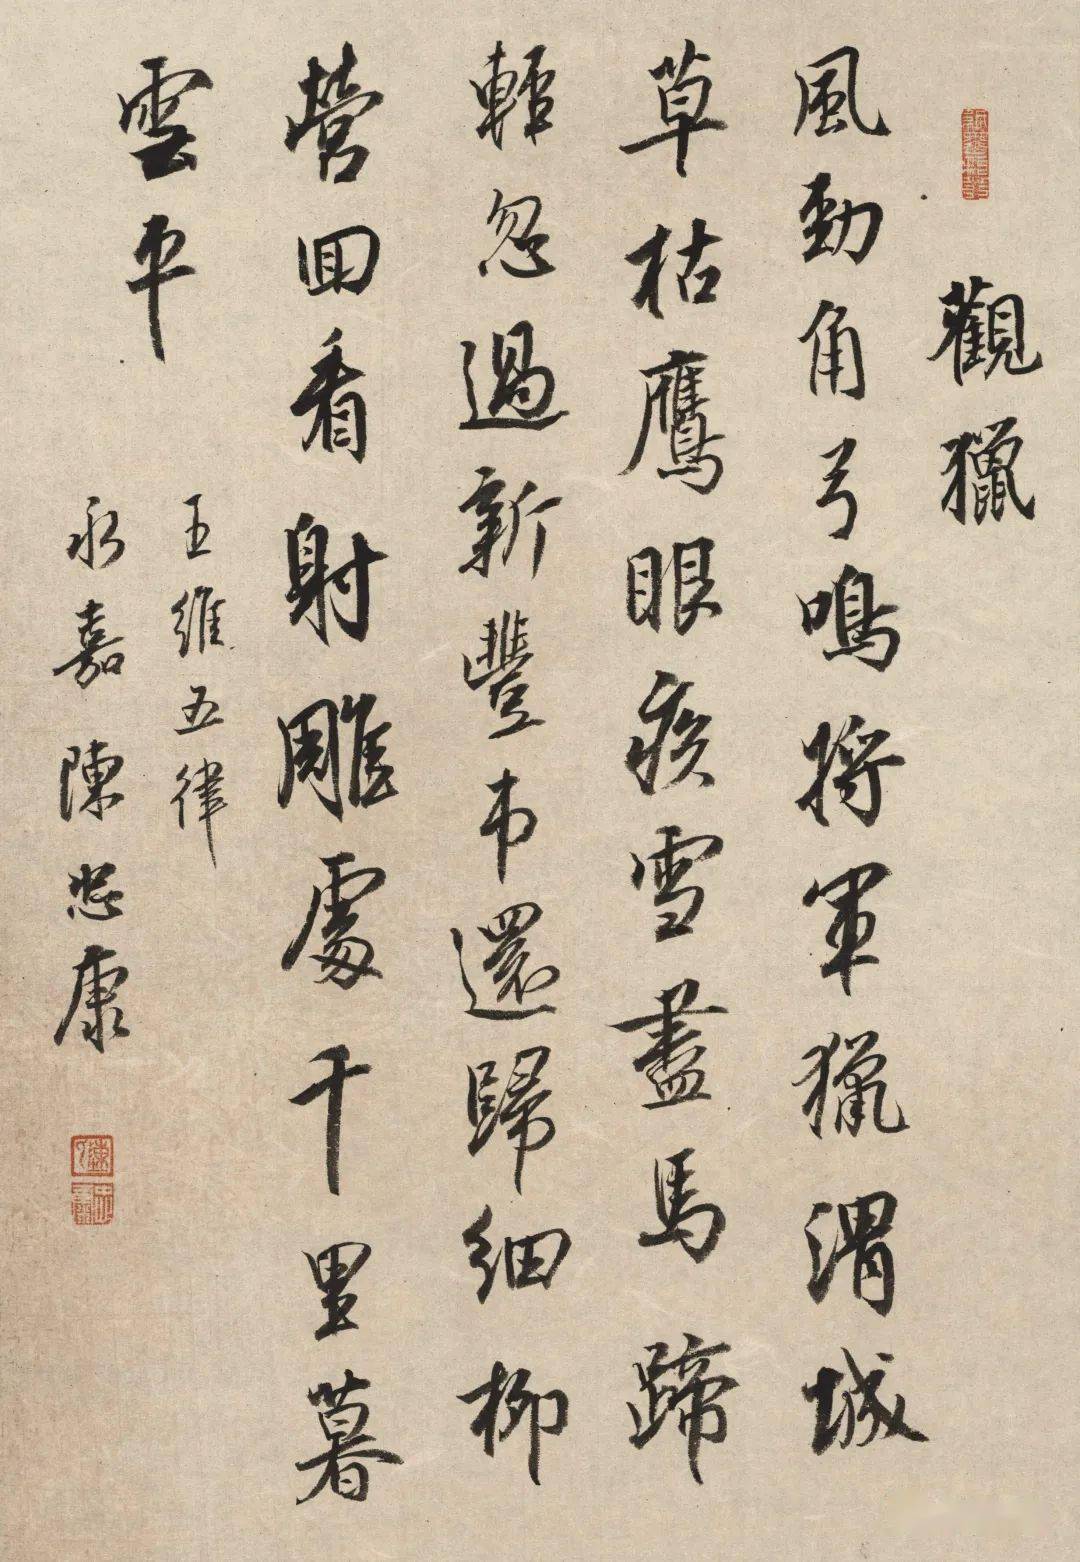 觀獵
風勁角弓鳴將軍獵渭城
草枯鷹眼疾雪盡馬蹄
輕忽過新豐市還歸細柳
營回看射雕處千里暮
雲平
王維五律
永嘉陳忠康